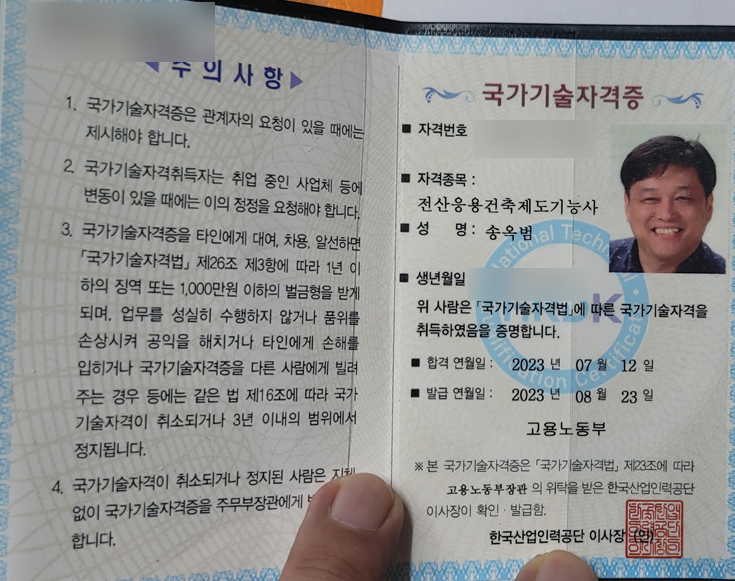 주의사항
1. 국가기술자격증은 관계자의 요청이 있을 때에는
제시해야 합니다.
2. 국가기술자격취득자는 취업 중인 사업체 등에
변동이 있을 때에는 이의 정정을 요청해야 합니다.
3. 국가기술자격증을 타인에게 대여, 차용, 알선하면
「국가기술자격법」 제26조 제3항에 따라 1년 이
하의 징역 또는 1,000만원 이하의 벌금형을 받게
되며, 업무를 성실히 수행하지 않거나 품위를
손상시켜 공익을 해치거나 타인에게 손해를
입히거나 국가기술자격증을 다른 사람에게 빌려
주는 경우 등에는 같은 법 제16조에 따라 국가
기술자격이 취소되거나 3년 이내의 범위에서
정지됩니다.
4. 국가기술자격이 취소되거나 정지된 사람은 지체
없이 국가기술자격증을 주무부장관에게
합니다.
국가기술자격증
■ 자격번호
■ 자격종목 :
전산응용건축제도기능사
■ 성 명 : 송옥범
■ 생년월일
위 사람은 「국가기술자격법」에 따른 국가기술자격을
취득하였음을 증명합니다.
■ 합격 연월일 : 2023 년 07 월 12 일
■ 발급 연월일 : 2023 년 08 월 23 일
고용노동부
※ 본 국가기술자격증은 「국가기술자격법」 제23조에 따라
고용노동부장관 의 위탁을 받은 한국산업인력공단
이사장이 확인 · 발급함.
한국산업인력공단 이사장 (인)